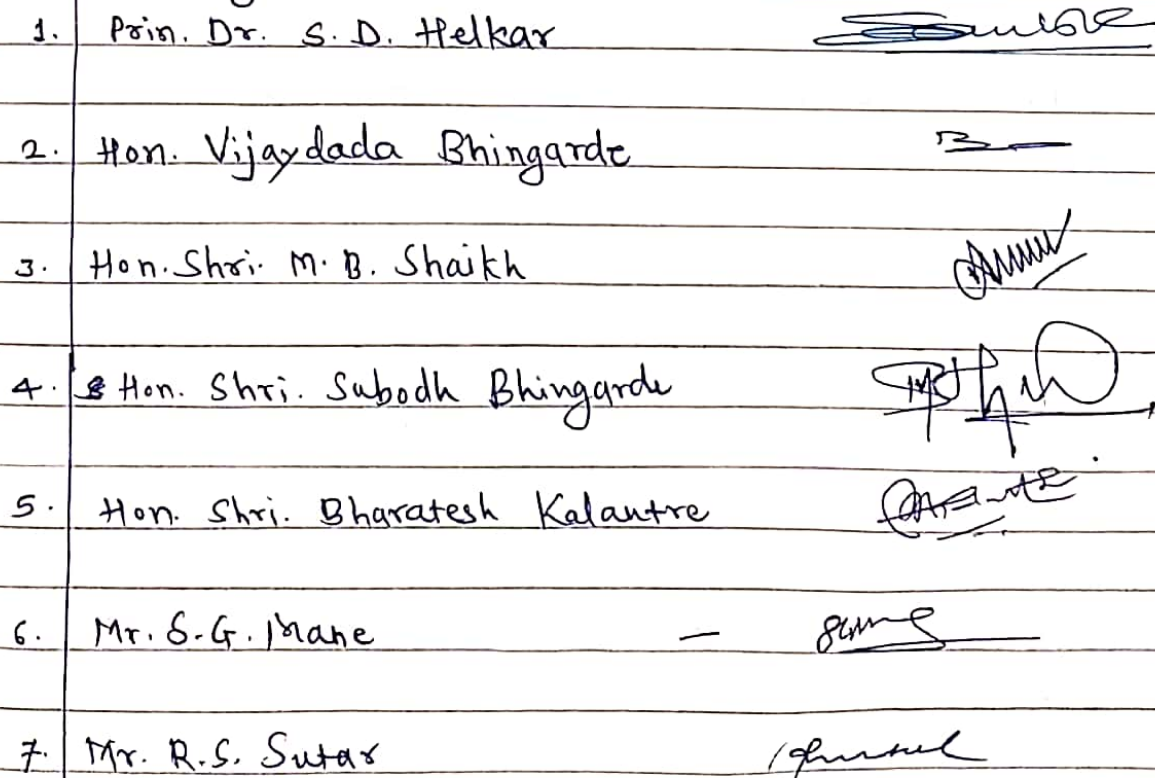 1. Prin. Dr. S. D. Helkar
2. Hon. Vijaydada Bhingarde
3. Hon. Shri. M. B. Shaikh
4. Hon. Shri. Subodh Bhingarde
5. Hon. Shri. Bharatesh Kalantre
6. Mr. S. G. Mane —
7. Mr. R. S. Sutar